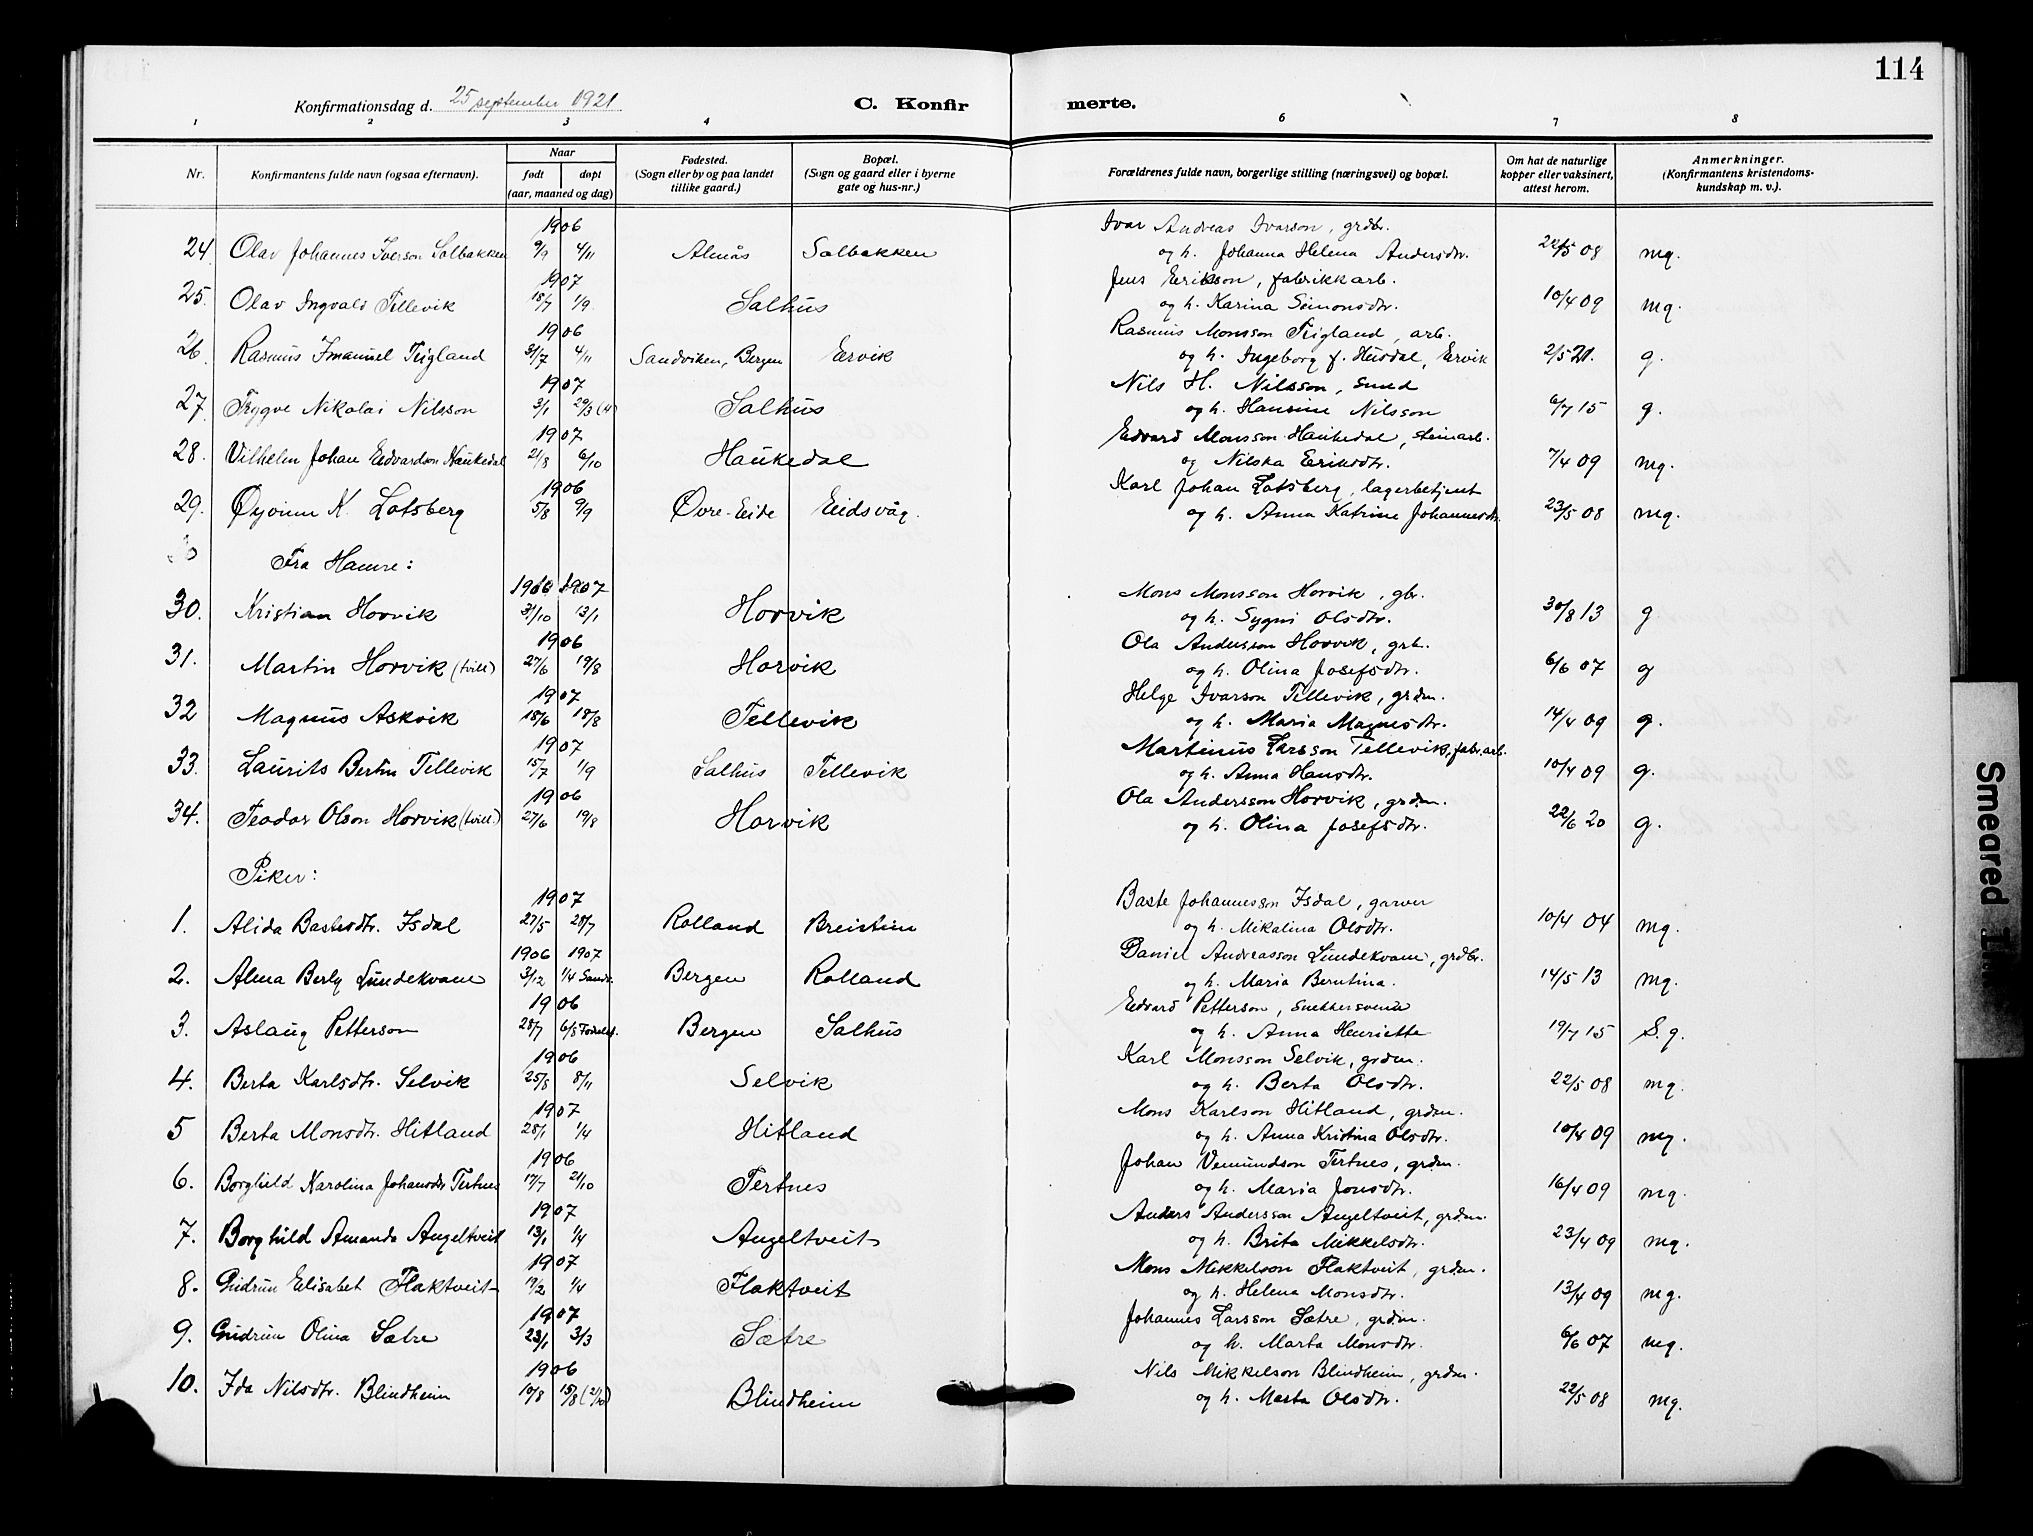 114
Konfirmationsdag d. 25 september 1921 C. Konfirmerte.
1 2 3 4 6 7 8
Nr. Konfirmantens fulde navn (ogsaa efternavn). Naar født døpt (aar, maaned og dag) Fødested. (Sogn eller by og paa landet tillike gaard.) Bopæl. (Sogn og gaard eller i byerne gate og hus-nr.) Forældrenes fulde navn, borgerlige stilling (næringsvei) og bopæl. Om hat de naturlige kopper eller vaksinert, attest herom. Anmerkninger. (Konfirmantens kristendomskundskap m. v.).
1906 Ivar Andreas Ivarson, grdbr.
24 Olav Johannes Iverson Solbakken 9/9 4/11 Almås Solbakken og h. Johanna Helena Andersdtr. 22/5 08 mg.
1907 Jens Erikson, fabrikkarb.
25. Olav Ingvald Tellevik 18/7 1/9 Salhus og h. Karina Simonsdtr. 10/4 09 mg.
1906 Rasmus Monsson Teigland, arb.
26. Rasmus Imanuel Teigland 31/7 4/11 Sandviken, Bergen Eervik og h. Ingeborg f. Husdal, Eervik 2/5 21. g.
1907 Nils H. Nilsson, smed
27. Trygve Nikolai Nilsson 3/1 29/3 (4) Salhus og h. Hansine Nilsson 6/7 15 g.
1907 Edvard Monsson Haukedal, steinarb.
28. Vilhelm Johan Edvardson Haukedal 21/8 6/10 Haukedal og Nilska Eriksdtr. 7/4 09 mg.
1906 Karl Johan Lotsberg, lagerbetjent
29. Øyvinn K. Lotsberg 5/8 9/9 Øvre-Eide Eidsvåg. og h. Anna Katrine Johannesdtr. 23/5 08 mg.
30 Fra Hamre:
1906 1907 Mons Monsson Horvik, gbr.
30. Kristian Horvik 31/10 13/1 Horvik og h. Sygni Olsdtr. 30/8 13 g
1906 Ola Andersson Horvik, grb.
31. Martin Horvik (tvill) 27/6 19/8 Horvik og h. Olina Josefsdtr. 6/6 07 g
1907 Helge Ivarson Tellevik, grdm.
32 Magnus Askvik 18/6 18/8 Tellevik og h. Maria Magnesdtr. 14/4 09 g.
1907 Martinus Larsson Tellevik, fabr.arb.
33. Laurits Bertin Tellevik 15/7 1/9 Salhus Tellevik og h. Anna Hansdtr. 10/4 09 g.
1906 Ola Andersson Horvik, grdm.
34. Teodor Olson Horvik (tvill.) 27/6 19/8 Horvik og h. Olina Josefsdtr. 22/6 20 g.
Piker:
1907 Baste Johannesson Isdal, garver
1. Alida Bastesdtr. Isdal 27/5 28/7 Rolland Breistein og h. Mikalina Olsdtr. 10/4 04 mg.
1906 1907 Daniel Andreasson Lundekvam, grdbr.
2. Alma Berly Lundekvam 3/12 1/4 Sandv. Bergen Rolland og h. Maria Berntina. 14/5 13 mg.
1906 Edvard Petterson, snekkersvend
3. Aslaug Petterson 28/7 6/5 Bergen Salhus og h. Anna Henriette 19/7 15 S.g.
1906 Karl Monsson Selvik, grdm.
4. Berta Karlsdtr. Selvik 25/8 8/11 Selvik og h. Berta Olsdtr. 22/5 08 mg.
1907 Mons Karlson Hitland, grdm.
5 Berta Monsdtr. Hitland 28/1 1/4 Hitland og h. Anna Kristina Olsdtr. 10/4 09 mg.
1906 Johan Vemundson Tertnes, grdm.
6. Borghild Karolina Johansdtr Tertnes 17/7 21/10 Tertnes og h. Maria Jonsdtr. 16/4 09 mg.
1907 Anders Andersson Angeltveit, grdm.
7. Borghild Amanda Angeltveit 13/1 1/4 Angeltveit og h. Brita Mikkelsdtr. 23/4 09 mg.
1907 Mons Mikkelson Flaktveit, grdm.
8. Gudrun Elisabet Flaktveit 17/2 1/4 Flaktveit og h. Helena Monsdtr. 13/4 09 mg.
1907 Johannes Larsson Sætre, grdm.
9. Gudrun Olina Sætre 23/1 3/3 Sætre og h. Marta Monsdtr. 6/6 07 mg.
1906 Nils Mikkelson Blindheim, grdm.
10. Ida Nilsdtr. Blindheim 10/8 15/8 (21/10) Blindheim og h. Marta Olsdtr. 22/5 08 mg.
Smeared